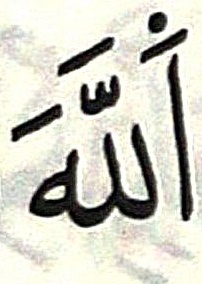 اَللَّهَ